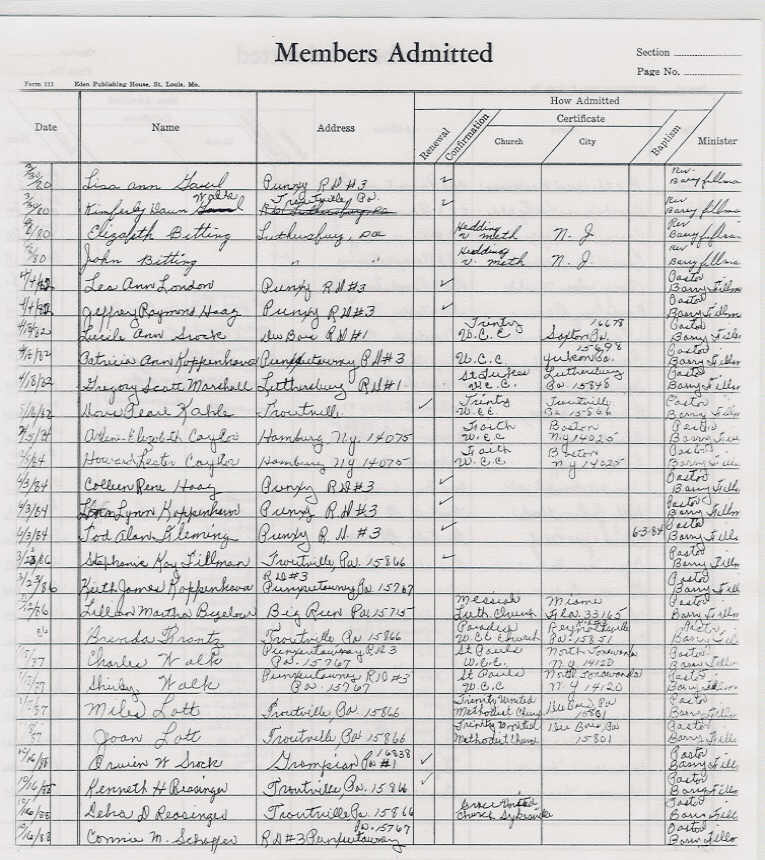 Members Admitted
Section
Page No.
Form 111 Eden Publishing House, St. Louis, Mo.
How Admitted
Certificate
Date Name Address Renewal Confirmation Church City Baptism Minister
Rev
3/30/80 Lisa Ann Punxy RD #3 ✓ Barry
Walk Troutville, Pa. Rev
3/30/80 Kimberly Dawn ✓ Barry
Hedding Rev
/80 Elizabeth Bitting Luthersburg, Pa U. Meth N. J. Barry
Hedding Rev
/80 John Bitting " " U. Meth N. J. Barry
Pastor
4/4/82 Lea Ann London Punxy RD #3 ✓ Barry Fillm
Pastor
4/4/82 Jeffrey Raymond Haag Punxy RD #3 ✓ Barry Fillm
Trinity 16678 Pastor
4/18/82 Lucile Ann Srock Du Bois RD #1 U.C.C Saxton Pa. Barry
15698 Pastor
4/18/82 Patricia Ann Koppenhava Punxsutawney RD #3 U.C.C. Yukon Pa. Barry Fillm
St Lukes Luthersburg Pastor
4/18/82 Gregory Scott Marshall Luthersburg RD #1 U.C.C. Pa 15848 Barry Fillm
Trinity Troutville Pastor
/82 Pearl Kahle Troutville ✓ U.C.C. Pa 15866 Barry
Faith Boston Pastor
/84 Arlene Elizabeth Caylor Hamburg N.Y. 14075 U.C.C N.Y 14025 Barry
Faith Boston Pastor
/84 Howard Lester Caylor Hamburg N.Y 14075 U.C.C. N Y 14025 Barry
Pastor
6/3/84 Colleen Rene Haag Punxy RD #3 ✓ Barry Fillm
Pastor
6/3/84 Lynn Koppenhava Punxy RD #3 ✓ Barry Fillm
Pastor
6/3/84 Tod Alan Fleming Punxy R.D. #3 ✓ 6-3-84 Barry Fills
Pastor
3/23/86 Stephanie Kay Fillman Troutville, Pa. 15866 ✓ Barry Fillm
RD #3 Pastor
3/23/86 Keith James Koppenhava Punxsutawney Pa 15767 Barry Fillm
Messiah Miami Pastor
/86 Lillian Martha Bigelow Big Run Pa 15715 Luth Church Fla. 33165 Barry Fillm
Paradise Reynoldsville Pastor
86 Brenda Frantz Troutville Pa 15866 U.C.C Church Pa. 15851 Barry
Punxsutawney RD 3 St Pauls North Tonawanda Pastor
/87 Charles Walk Pa. 15767 U.C.C. N.Y 14120 Barry
Punxsutawney RD #3 St Pauls North Tonawanda Pastor
/87 Shirley Walk Pa. 15767 U.C.C N.Y 14120 Barry
Trinity United Du Bois Pa Pastor
/87 Miles Lott Troutville, Pa. 15866 Methodist Church 15801 Barry
Trinity United Du Bois Pa Pastor
/87 Joan Lott Troutville Pa 15866 Methodist Church 15801 Barry
16838 Pastor
10/16/88 W Srock Grampian Pa #1 ✓ Barry Fills
Pastor
10/16/88 Kenneth H Reasinger Troutville, Pa. 15866 ✓ Barry Fillm
Grace United Pastor
10/16/88 Debra D Reasinger Troutville Pa. 15866 Church Sykesville Barry Fill
Pa. 15767 Pastor
10/16/88 Connie M. Schaffer RD #3 Punxsutawney Barry Fillm